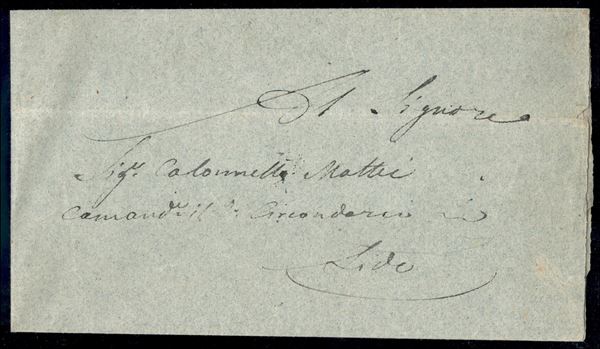 Al Signore
Sigr. Colonnello Mattei
Comandte il Circondario in
Lido